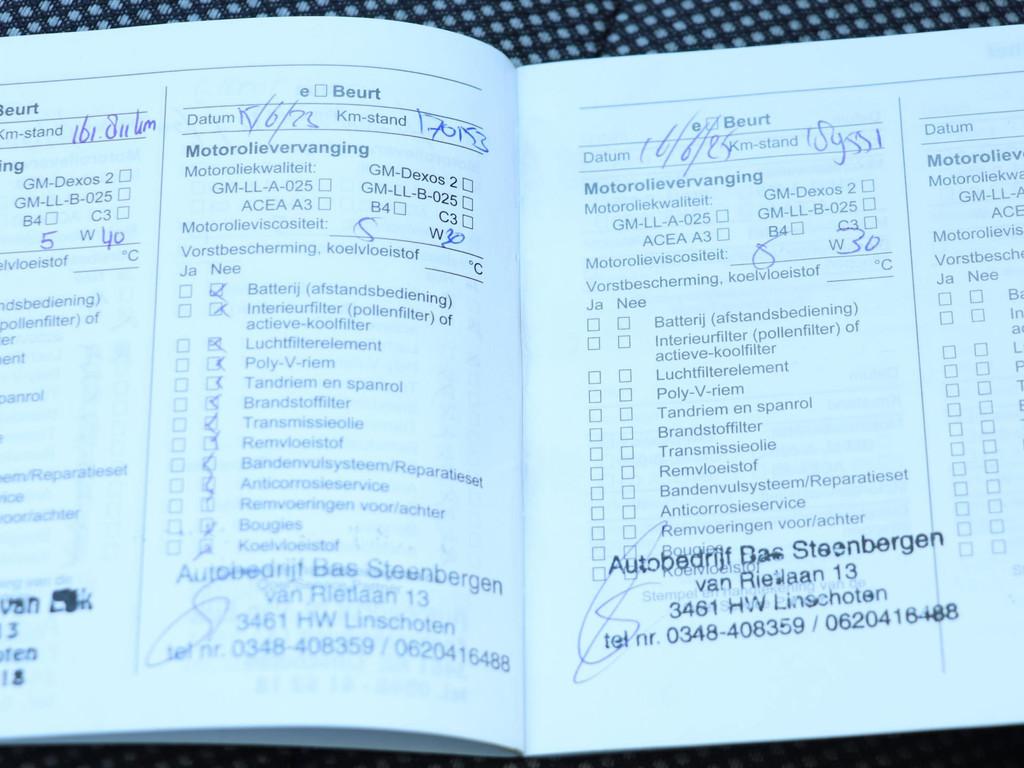 Beurt
Km-stand 161.811 km
ing
GM-Dexos 2
GM-LL-B-025
B4 C3
5 W 40
elvloeistof °C
ndsbediening)
pollenfilter) of
er
ent
panrol
eem/Reparatieset
vice
voor/achter
van
13
oten
18
e Beurt
Datum 15/6/23 Km-stand 170153
Motorolievervanging
Motoroliekwaliteit: GM-Dexos 2
GM-LL-A-025 GM-LL-B-025
ACEA A3 B4 C3
Motorolieviscositeit: 5 W 30
Vorstbescherming, koelvloeistof °C
Ja Nee
Batterij (afstandsbediening)
Interieurfilter (pollenfilter) of
actieve-koolfilter
Luchtfilterelement
Poly-V-riem
Tandriem en spanrol
Brandstoffilter
Transmissieolie
Remvloeistof
Bandenvulsysteem/Reparatieset
Anticorrosieservice
Remvoeringen voor/achter
Bougies
Koelvloeistof
Autobedrijf Bas Steenbergen
van Rietlaan 13
3461 HW Linschoten
tel nr. 0348-408359 / 0620416488
e Beurt
Datum Km-stand
Motorolievervanging
Motoroliekwaliteit: GM-Dexos 2
GM-LL-A-025 GM-LL-B-025
ACEA A3 B4 C3
Motorolieviscositeit: W 30
Vorstbescherming, koelvloeistof °C
Ja Nee
Batterij (afstandsbediening)
Interieurfilter (pollenfilter) of
actieve-koolfilter
Luchtfilterelement
Poly-V-riem
Tandriem en spanrol
Brandstoffilter
Transmissieolie
Remvloeistof
Bandenvulsysteem/Reparatieset
Anticorrosieservice
Remvoeringen voor/achter
Bougies
Koelvloeistof
Stempel en handtekening van de
Autobedrijf Bas Steenbergen
van Rietlaan 13
3461 HW Linschoten
tel nr. 0348-408359 / 0620416488
Datum
Motoroliev
Motoroliekwa
GM-LL-A
ACE
Motorolievis
Vorstbesche
Ja Nee
Ba
In
a
L
P
T